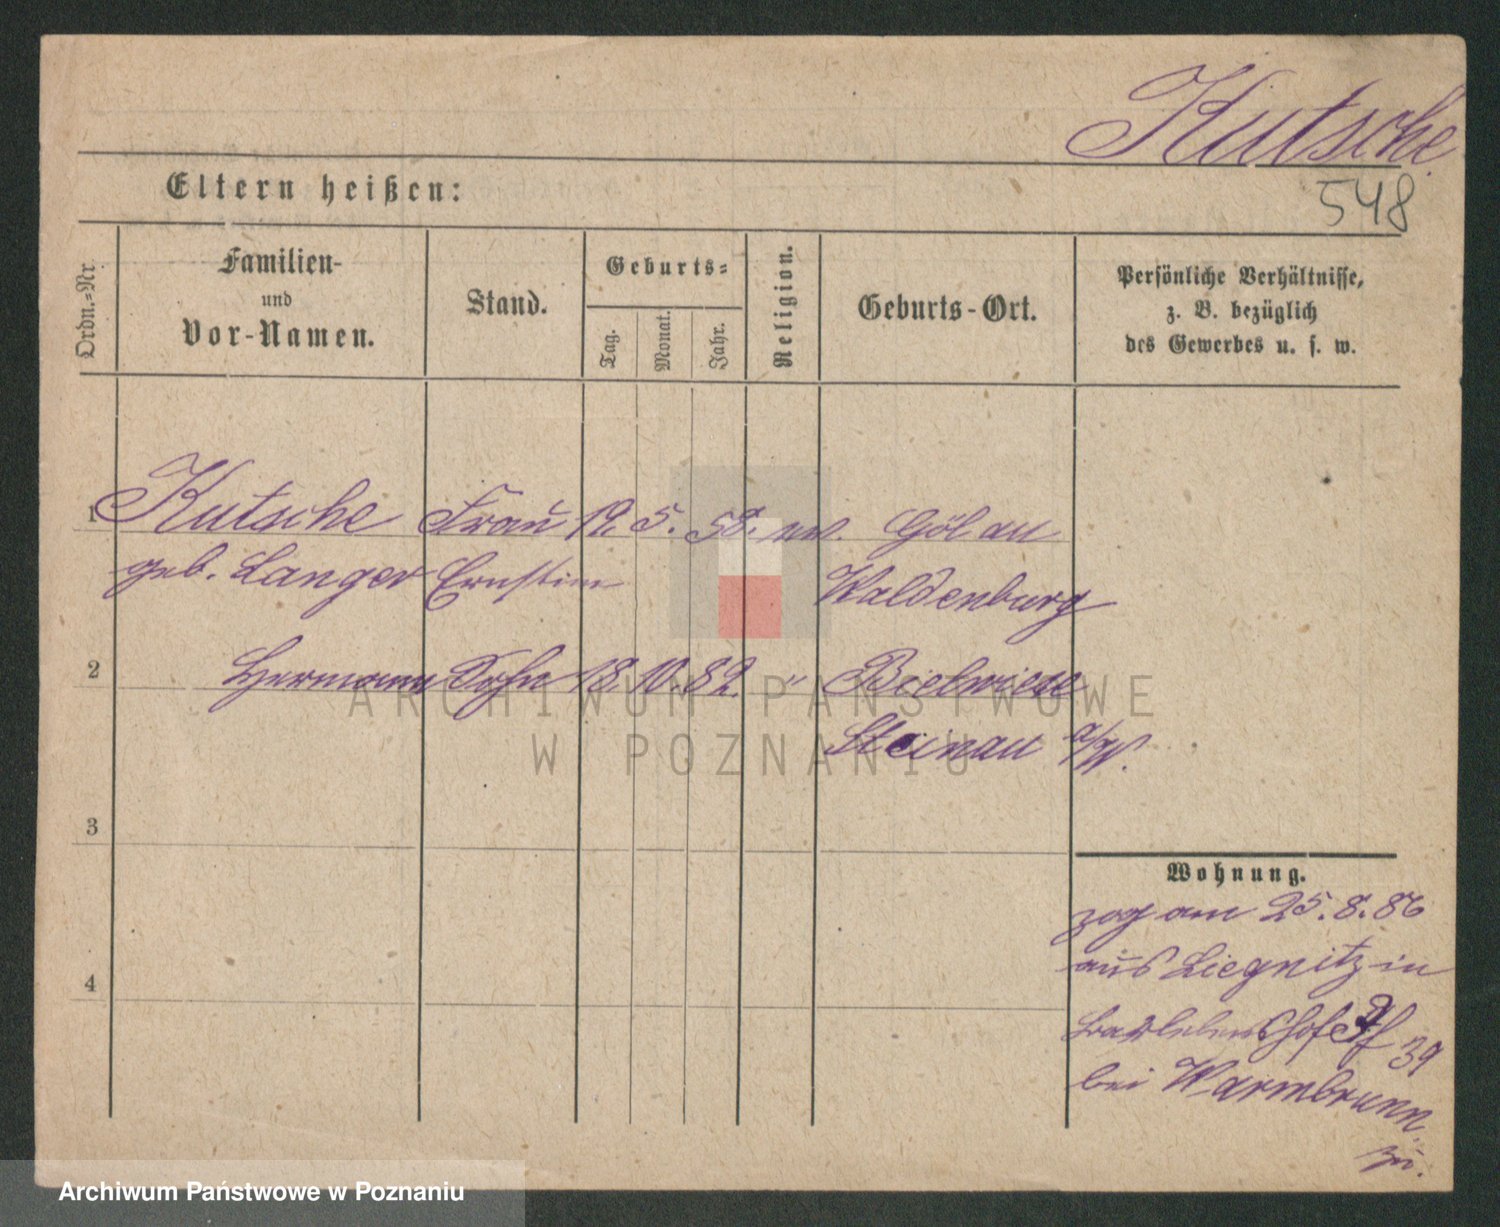 Kutsche
548
Eltern heißen:
Ordn.=Nr.
Familien-
und
Vor-Namen.
Stand.
Geburts=
Tag.
Monat.
Jahr.
Religion.
Geburts-Ort.
Persönliche Verhältnisse,
z. B. bezüglich
des Gewerbes u. s. w.
1 Kutsche Frau 12. 5. 58. Göl au
geb. Langer Ernstine Waldenburg
2 Hermann Sohn 18. 10. 82. " Bielwiese
Steinau
3
4
Wohnung.
zog am 25. 8. 86
aus Liegnitz in
39
bei Warmbrunn
zu.
ARCHIWUM PAŃSTWOWE
W POZNANIU
Archiwum Państwowe w Poznaniu